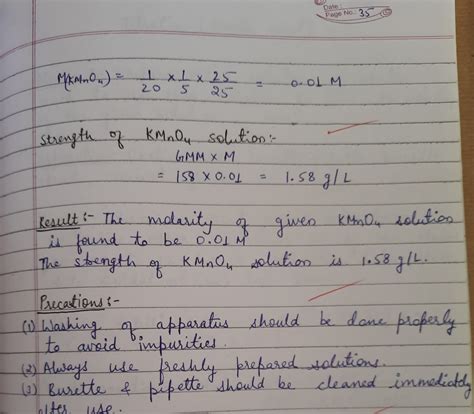 Date:
Page No.: 35
M(KMnO₄) = 1/20 × 1/5 × 25/25 = 0.01 M
Strength of KMnO₄ solution:-
GMM × M
= 158 × 0.01 = 1.58 g/L
Result:- The molarity of given KMnO₄ solution
is found to be 0.01 M
The strength of KMnO₄ solution is 1.58 g/L.
Precautions:-
(1) Washing of apparatus should be done properly
to avoid impurities.
(2) Always use freshly prepared solutions.
(3) Burette & pipette should be cleaned immediately
after use.